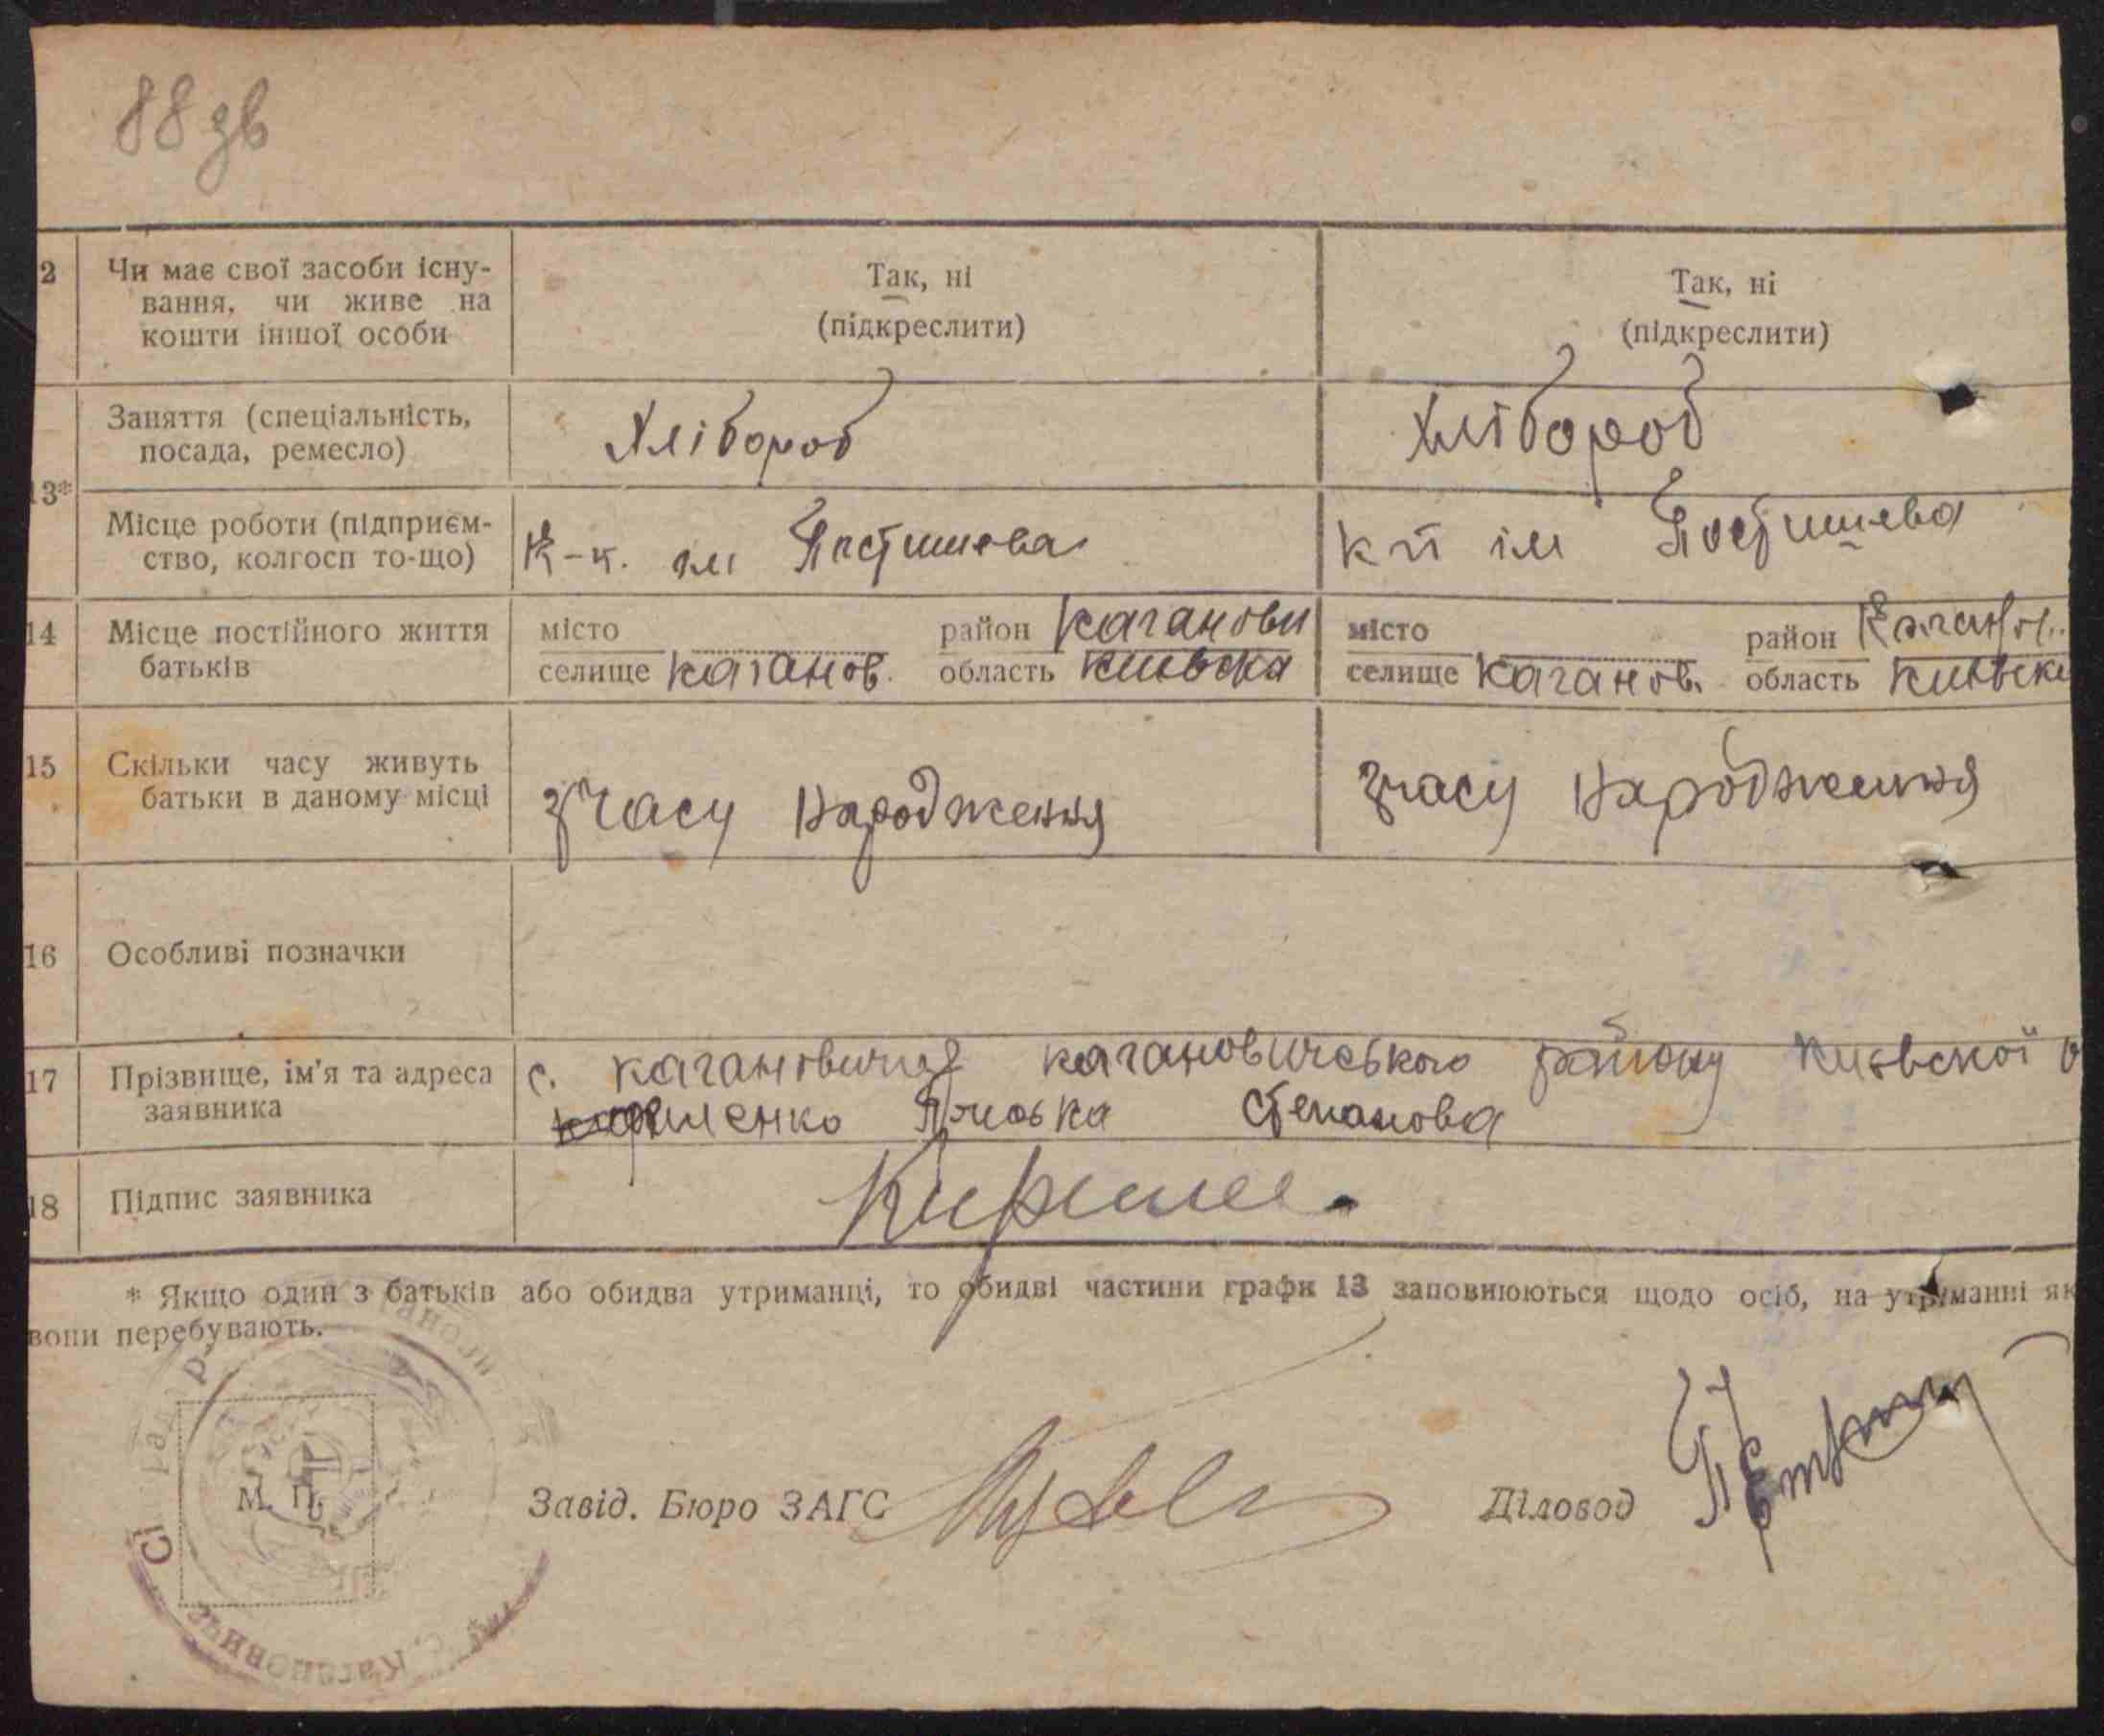 88 зв
2 Чи має свої засоби існу-
вання, чи живе на
кошти іншої особи
Так, ні
(підкреслити)
Так, ні
(підкреслити)
13*
Заняття (спеціальність,
посада, ремесло)
Хлібороб
Хлібороб
Місце роботи (підприєм-
ство, колгосп то-що)
К-п. ім Постишева
Кп ім Постишева
14 Місце постійного життя
батьків
місто район Каганови
селище Каганов. область Київска
місто район
селище Каганов. область Київски
15 Скільки часу живуть
батьки в даному місці
зчасу народження
зчасу народження
16 Особливі позначки
17 Прізвище, ім'я та адреса
заявника
с. Кагановичах Кагановичського району Київскої о
Степанова
18 Підпис заявника
* Якщо один з батьків або обидва утриманці, то обидві частини графи 13 заповнюються щодо осіб, на утриманні як
вони перебувають.
М. П.
С. Кагановичі
Завід. Бюро ЗАГС
Діловод